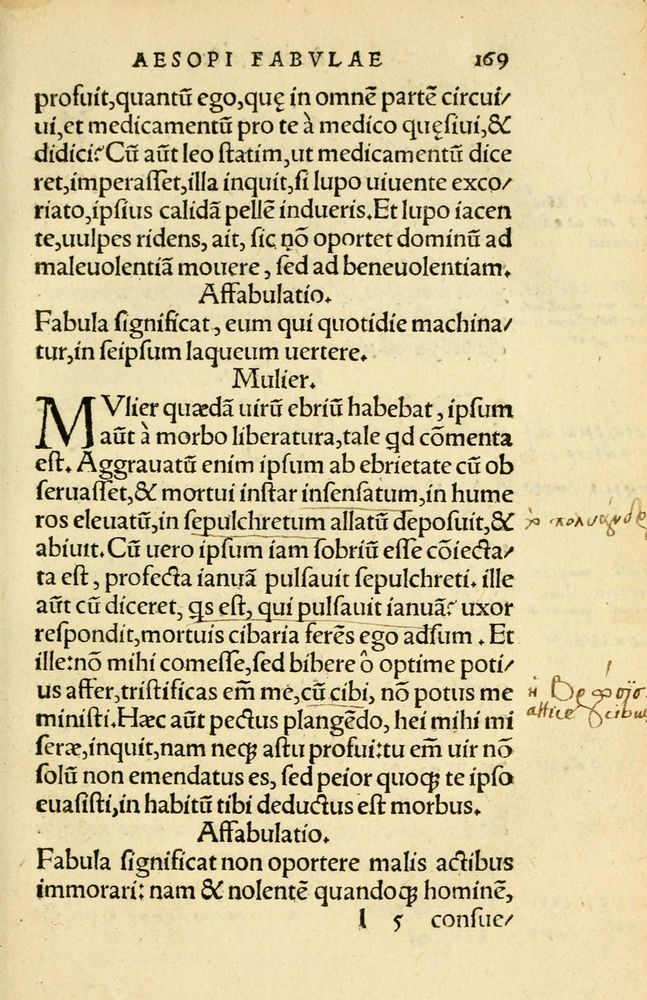 AESOPI FABVLAE 169
profuit,quantũ ego,quę in omnẽ partẽ circui/
ui,et medicamentũ pro te à medico quęſiui,&
didici? Cũ aũt leo ſtatim,ut medicamentũ dice
ret,imperaſſet,illa inquit,ſi lupo uiuente exco/
riato,ipſius calidã pellẽ indueris.Et lupo iacen
te,uulpes ridens, ait, ſic nõ oportet dominũ ad
maleuolentiã mouere, ſed ad beneuolentiam.
Affabulatio.
Fabula ſignificat, eum qui quotidie machina/
tur,in ſeipſum laqueum uertere.
Mulier.
MVlier quædã uirũ ebriũ habebat, ipſum
aũt à morbo liberatura,tale qd cõmenta
eſt. Aggrauatũ enim ipſum ab ebrietate cũ ob
ſeruaſſet,& mortui inſtar inſenſatum,in hume
ros eleuatũ,in ſepulchretum allatũ depoſuit,&
abiuit. Cũ uero ipſum iam ſobriũ eſſe cõiecta/
ta eſt, profecta ianuã pulſauit ſepulchreti. ille
aũt cũ diceret, qs eſt, qui pulſauit ianuã? uxor
reſpondit,mortuis cibaria ferẽs ego adſum. Et
ille:nõ mihi comeſſe,ſed bibere ô optime poti/
us affer,triſtificas em̃ me,cũ cibi, nõ potus me
miniſti. Hæc aũt pectus plangẽdo, hei mihi mi
ſeræ,inquit,nam neqꝫ aſtu profui:tu em̃ uir nõ
ſolũ non emendatus es, ſed peior quoqꝫ te ipſo
euaſiſti,in habitũ tibi deductus eſt morbus.
Affabulatio.
Fabula ſignificat non oportere malis actibus
immorari: nam & nolentẽ quandoqꝫ hominẽ,
l 5 conſue/
attice cibus